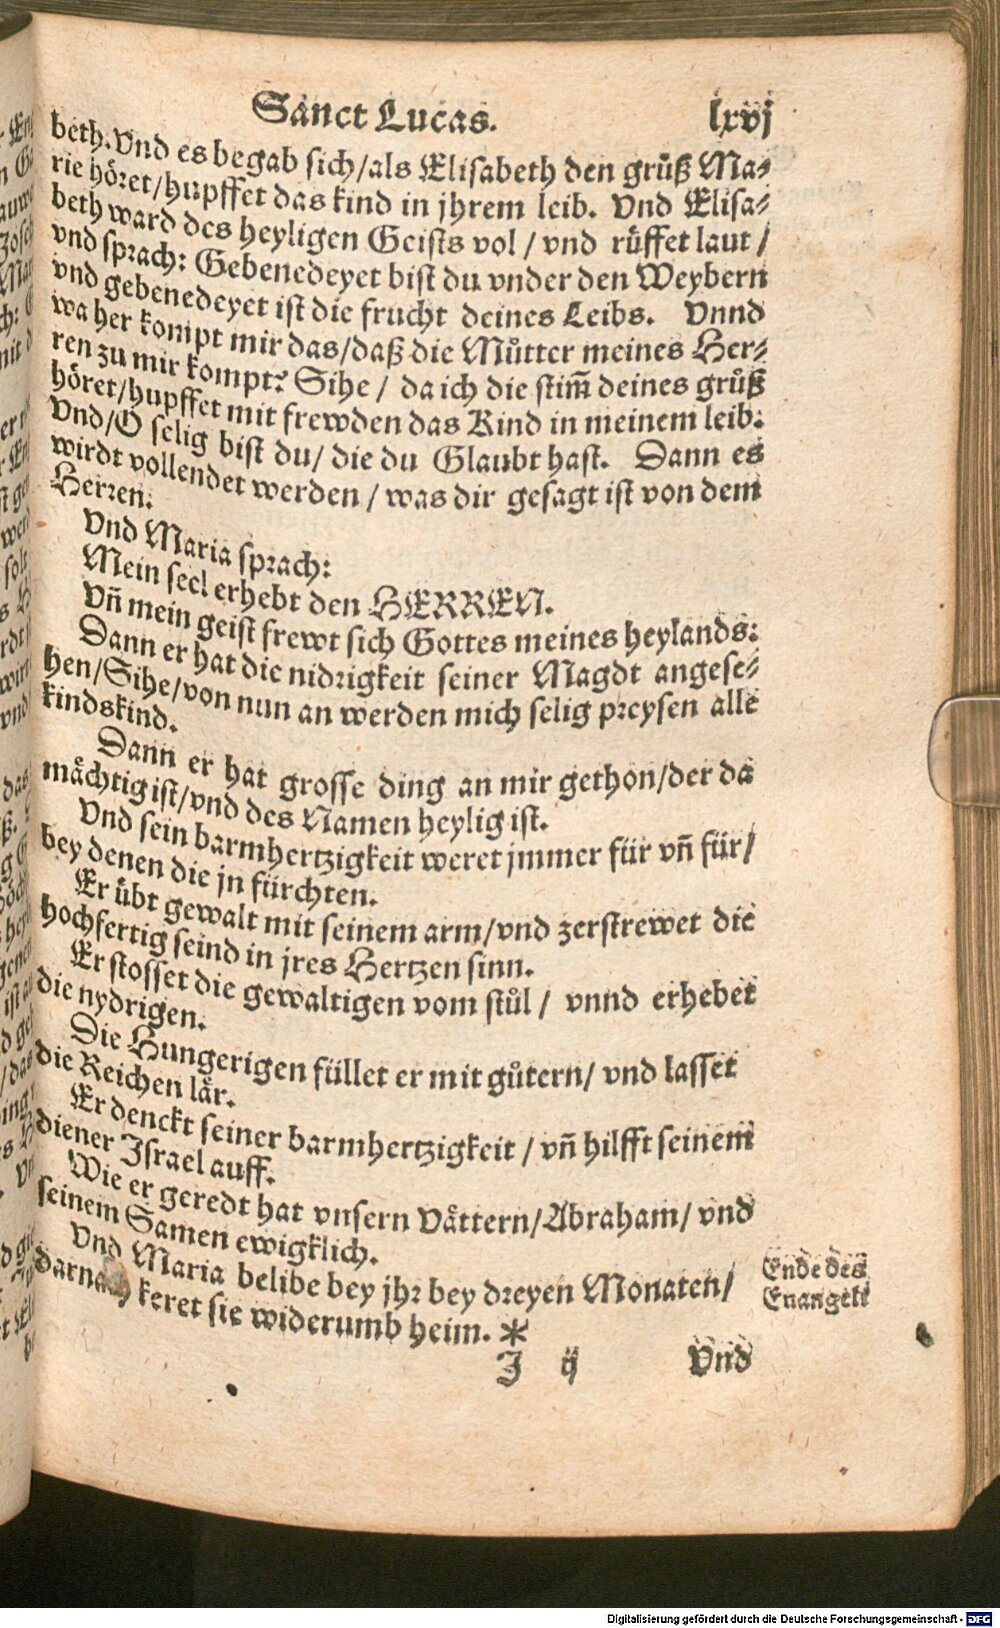 Sanct Lucas. lxvj
beth. Vnd es begab sich/als Elisabeth den gruͤß Ma⸗
rie hoͤret/hupffet das kind in jhrem leib. Vnd Elisa⸗
beth ward des heyligen Geists vol / vnd ruͤffet laut /
vnd sprach: Gebenedeyet bist du vnder den Weybern
vnd gebenedeyet ist die frucht deines Leibs. Vnnd
wa her kompt mir das/daß die Muͤtter meines Her⸗
ren zu mir kompt? Sihe / da ich die stim̃ deines gruͤß
hoͤret/hupffet mit frewden das Kind in meinem leib:
Vnd/O selig bist du/ die du Glaubt hast. Dann es
wirdt vollendet werden / was dir gesagt ist von dem
Herren.
Vnd Maria sprach:
Mein seel erhebt den HERREN.
Vñ mein geist frewt sich Gottes meines heylands:
Dann er hat die nidrigkeit seiner Magdt angese⸗
hen/Sihe/von nun an werden mich selig preysen alle
kindskind.
Dann er hat grosse ding an mir gethon/der da
maͤchtig ist/vnd des Namen heylig ist.
Vnd sein barmhertzigkeit weret jmmer für vñ für/
bey denen die jn fürchten.
Er uͤbt gewalt mit seinem arm/vnd zerstrewet die
hochfertig seind in jres Hertzen sinn.
Er stosset die gewaltigen vom stuͤl / vnnd erhebet
die nydrigen.
Die Hungerigen füllet er mit guͤtern/ vnd lasset
die Reichen laͤr.
Er denckt seiner barmhertzigkeit / vñ hilfft seinem
diener Israel auff.
Wie er geredt hat vnsern Vaͤttern/Abraham/ vnd
seinem Samen ewigklich.
Vnd Maria belibe bey jhr bey dreyen Monaten/
darnach keret sie widerumb heim. *
Ende des
Euangeli
J ij Vnd
Digitalisierung gefördert durch die Deutsche Forschungsgemeinschaft - DFG